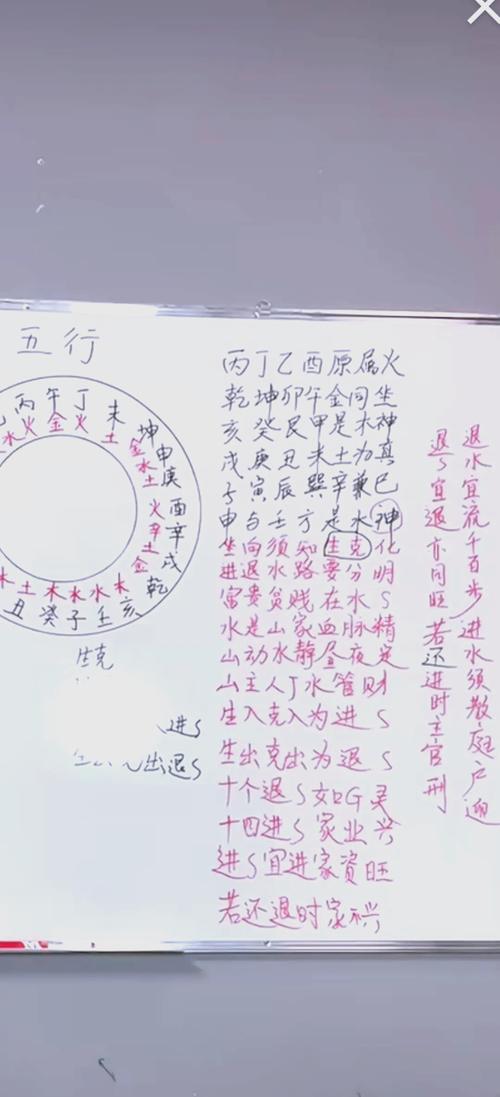 五行
丙午丁未坤申庚酉辛戌乾亥壬子癸丑
水火金火土金水土火辛土金木水水木土木
生克
进S
出退S
丙丁乙酉原属火
乾坤卯午金同坐
亥癸艮甲是木神
戌庚丑未土为真
子寅辰巽辛兼巳
申与壬方是水神
坐向须知生克化
进退水路要分明
富贵贫贱在水S
水是山家血脉精
山动水静昼夜定
山主人丁水管财
生入克入为进S
生出克出为退S
十个退S如G灵
十四进S家业兴
进S宜进家资旺
若还退时家不兴
退水宜流千百步 进水须教庭户迎
退S宜退亦同旺 若还进时主官刑